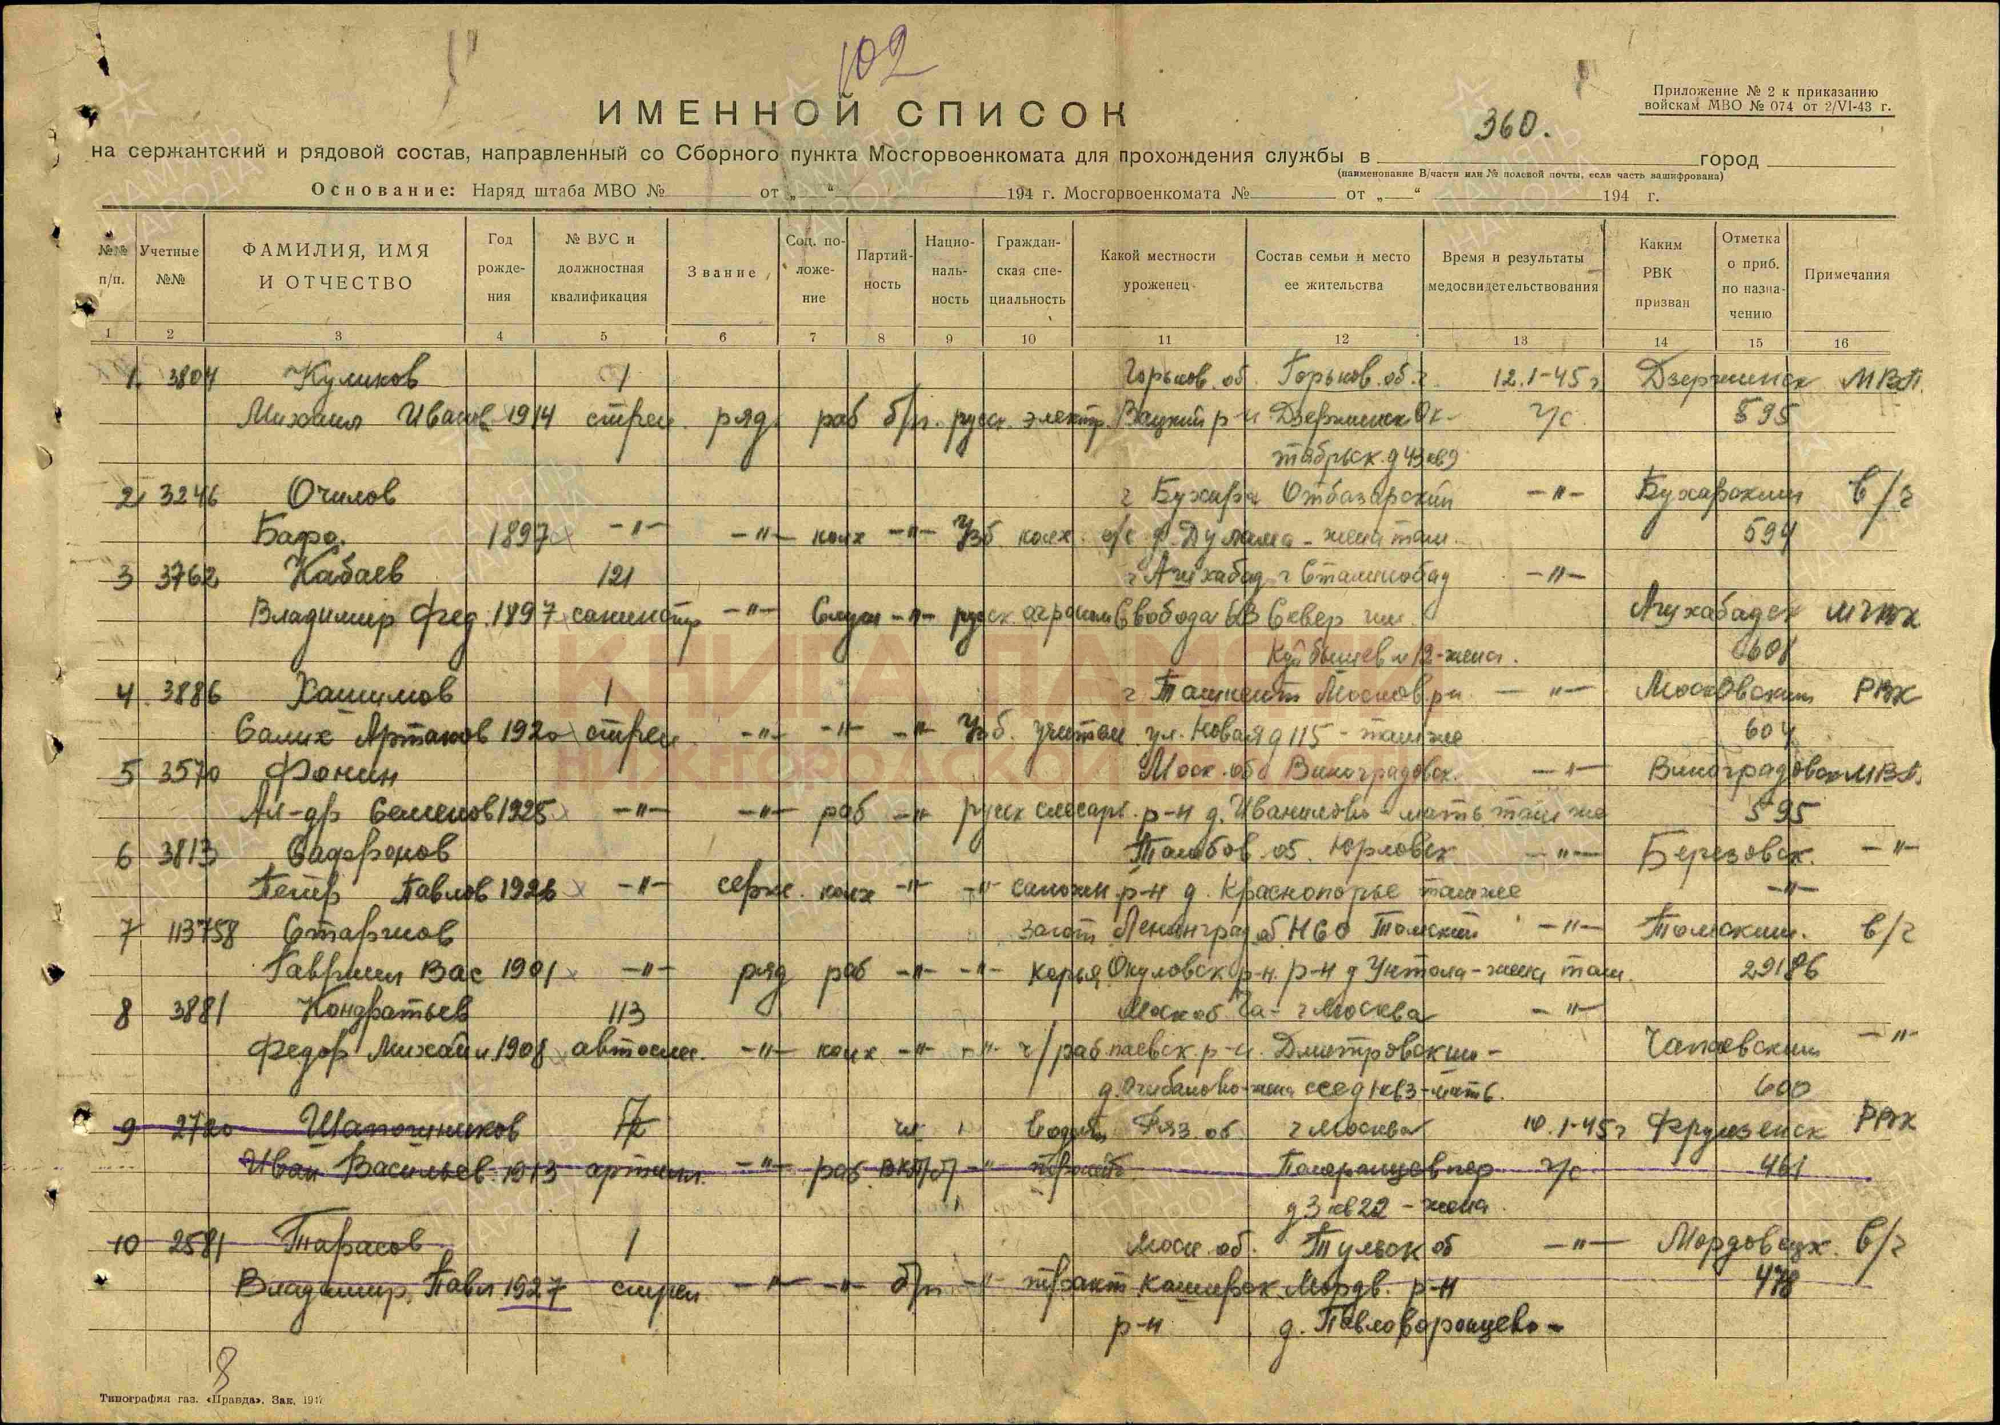 102
ИМЕННОЙ СПИСОК
Приложение № 2 к приказанию
войскам МВО № 074 от 2/VI-43 г.
360.
на сержантский и рядовой состав, направленный со Сборного пункта Мосгорвоенкомата для прохождения службы в город
(наименование В/части или № полевой почты, если часть зашифрована)
Основание: Наряд штаба МВО № от „ “ 194 г. Мосгорвоенкомата № от „ “ 194 г.
№№ п/п. Учетные №№ ФАМИЛИЯ, ИМЯ И ОТЧЕСТВО Год рожде- ния № ВУС и должностная квалификация Звание Соц. по- ложе- ние Партий- ность Нацио- наль- ность Граждан- ская спе- циальность Какой местности уроженец Состав семьи и место ее жительства Время и результаты медосвидетельствования Каким РВК призван Отметка о приб. по назна- чению Примечания
1 2 3 4 5 6 7 8 9 10 11 12 13 14 15 16
1. 3804 Куликов 1 Горьков. об. Горьков. об. г. 12.1-45 г Дзержинск МВП.
Михаил Иванов 1914 стрел. ряд. раб б/п. русск. электр. Вацкий р-н Дзержинск Ок- г/с. 595
тябрьск. д 43 кв 9
2 3246 Очилов г Бухара Отбазарский -"- Бухарским в/г
Бафо. 1897 -"- -"- колх -"- Узб. колх. жена там. 594
3 3762 Кабаев 121 г Ашхабад г Сталинобад -"-
Владимир Фед. 1897 санинстр -"- Служ -"- русск агроном Свобода 63 Сквер им Ашхабадск
Куйбышева 12-жена. 608
4 3886 Хашимов 1 г Ташкент Москов р-н. -"- Московским РВК
Салих 1920 стрел -"- -"- -"- Узб. учител ул. Новая д 115 - там же 604
5 3570 Фонин Моск. об. Виноградовск. -"- Виноградовск МВП.
Ал-др Семенов 1925 -"- -"- раб -"- русск слесарь р-н д. Иваниловь - мать там же 595
6 3813 Сафронов Тамбов. об. Юрловск -"- Березовск. -"-
Петр Павлов 1926 -"- серж. колх -"- -"- сапожн р-н д. Краснополье там же -"-
7 113758 Старшов загот Ленинград об. НСО Томский -"- Томским. в/г
Гаврил Вас 1901 -"- ряд раб -"- -"- корья Окуловск р-н. р-н д - жена там. 29186
8 3881 Кондратьев 113 Моск об. Ча- г Москва -"-
Федор Михайл. 1908 автослес. -"- колх -"- -"- ч/раб паевск р-н. Дмитровский- Чапаевским -"-
600
9 2720 Шапошников чл. Ряз. об. г Москва 10.1-45 г Фрунзенск РВК
Иван Васильев. 1913 артилл. -"- раб. ВКП/б/ -"- Померанцев пер г/с 461
д 3 кв 22 - жена.
10 2581 Тарасов 1 Моск. об. Тульск об -"- Мордовецк. в/г
Владимир. Павл 1927 стрел -"- -"- б/п. -"- тракт Каширск Мордв. р-н 478
р-н д. Павловоронцево-
8
Типография газ. «Правда». Зак. 191
КНИГА ПАМЯТИ
НИЖЕГОРОДСКОЙ
ПАМЯТЬ НАРОДА